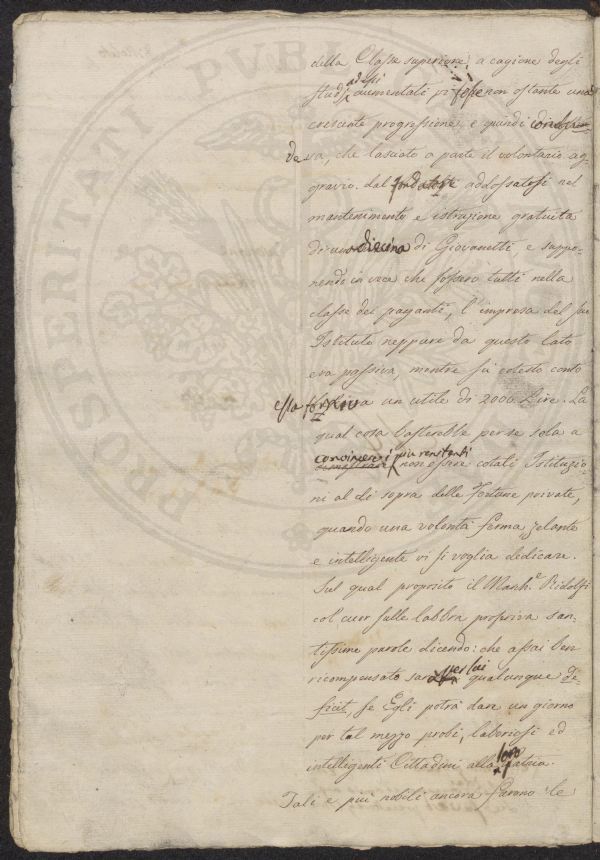 della Classe superiore, a cagione degli
studj ad essi aumentati vi fosse non ostante una
crescente progressione, e quindi conchiu=
deva, che lasciato a parte il volontario ag=
gravio dal fondatore addossatosi nel
mantenimento e istruzione gratuita
di una diecina di Giovanetti, e suppo=
nendo in vece che fossero tutti nella
classe dei paganti, l'impresa del suo
Istituto neppure da questo lato
era passiva, mentre su cotesto conto
essa un utile di 2000 Lire. La
qual cosa basterebbe per se sola a
convincere i più renitenti non essere cotali Istituzio=
ni al di sopra delle Fortune private,
quando una volontà ferma zelante
e intelligente vi si voglia dedicare.
Sul qual proposito il March.e Ridolfi
col cuor sulle labbra proferiva san=
tissime parole dicendo: che assai ben
ricompensato sarà per lui qualunque De=
ficit, se Egli potrà dare un giorno
per tal mezzo probi, laboriosi ed
intelligenti Cittadini alla loro patria.
Tali e più nobili ancora furono le